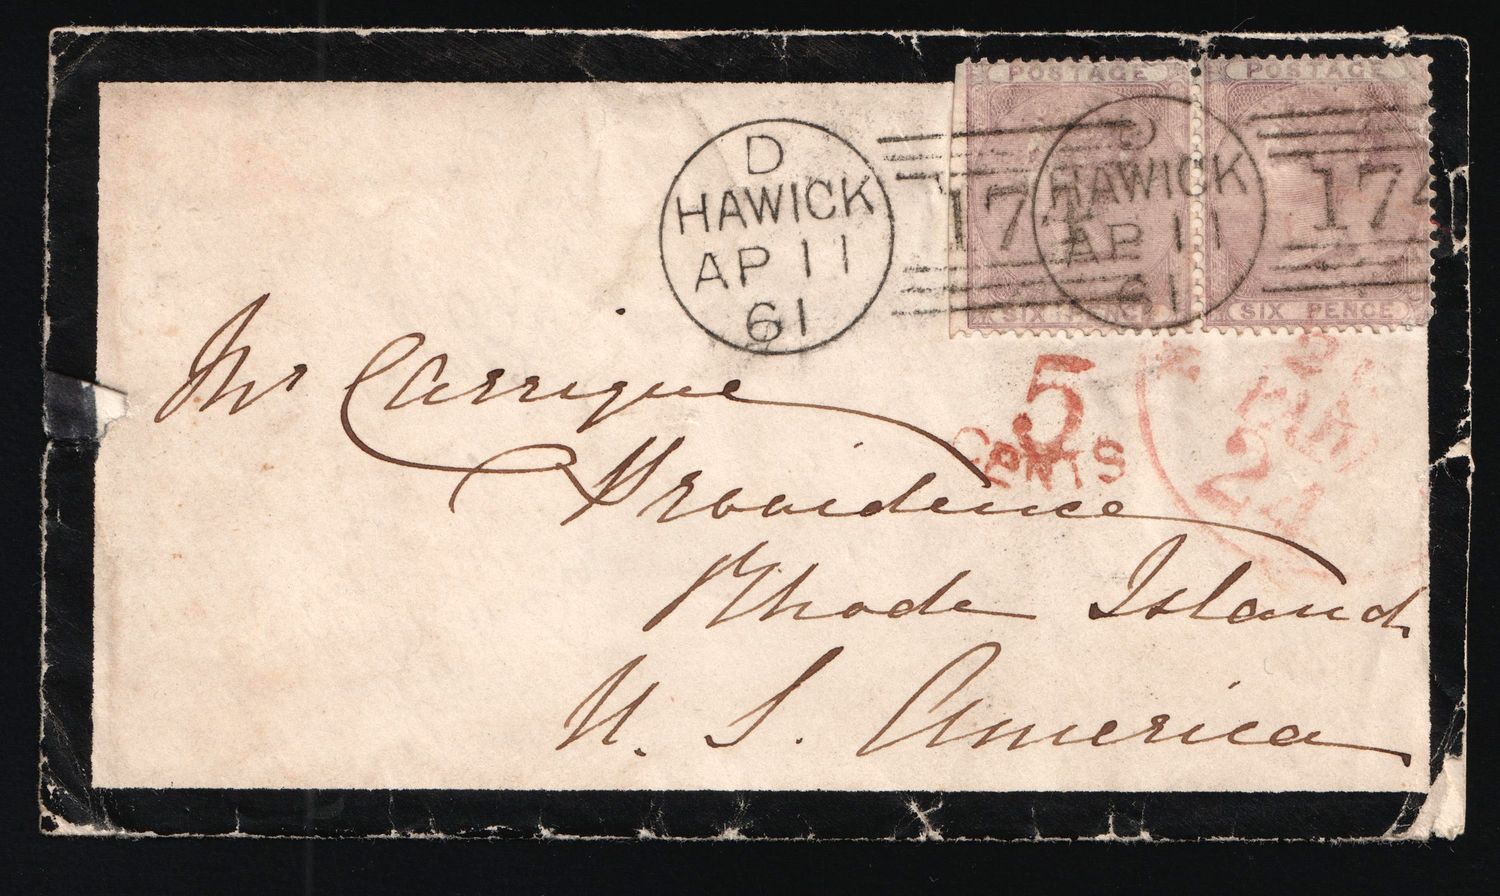 POSTAGE POSTAGE
D
HAWICK
AP 11
61
174
D
HAWICK
AP 11
61
174
SIX PENCE SIX PENCE
5
CENTS
24
Mr Carrique
Providence
Rhode Island
U. S. America